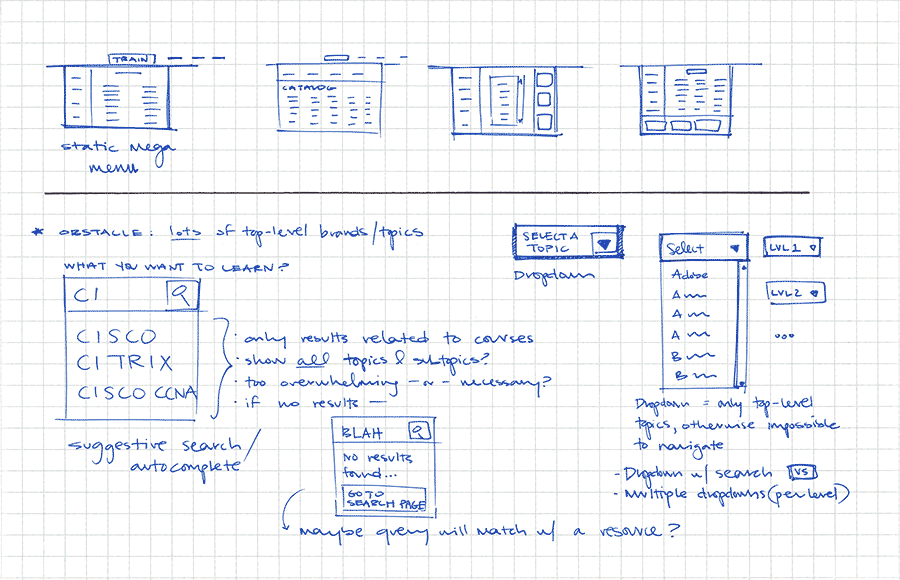 TRAIN
CATALOG
static mega
menu
* OBSTACLE: lots of top-level brands/topics
WHAT YOU WANT TO LEARN?
CI
CISCO
CITRIX
CISCO CCNA
suggestive search/
autocomplete
· only results related to courses
· show all topics & subtopics?
· too overwhelming — or — necessary?
· if no results —
BLAH
No results
found...
GO TO
SEARCH PAGE
maybe query will match w/ a resource?
SELECT A
TOPIC
Dropdown
Select
Adobe
A
A
A
B
B
LVL 1
LVL 2
...
Dropdown = only top-level
topics, otherwise impossible
to navigate
- Dropdown w/ search VS
- Multiple dropdowns (per level)